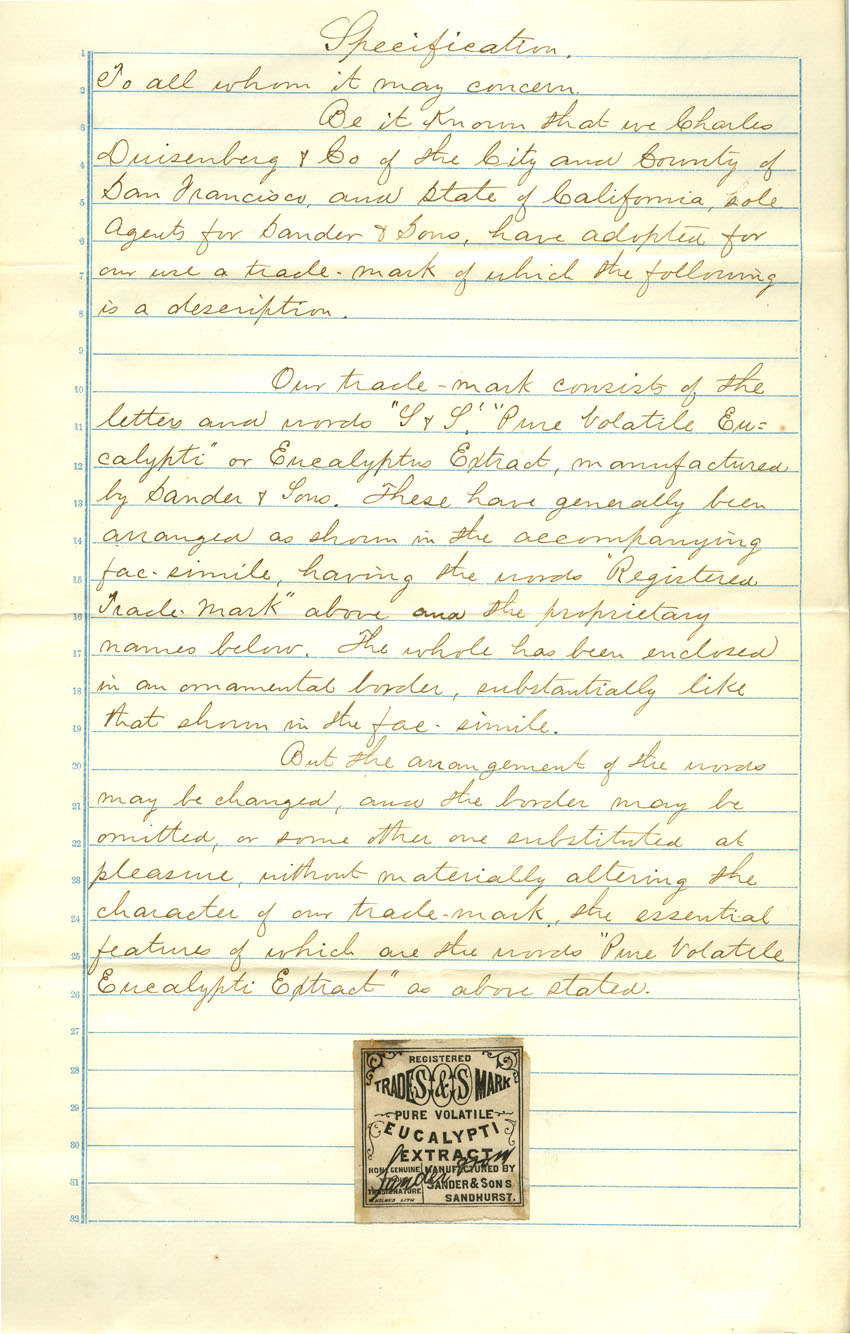 Specification.
To all whom it may concern.
Be it Known that we Charles
Duisenberg & Co of the City and County of
San Francisco, and State of California, sole
Agents for Sander & Sons, have adopted for
our use a trade-mark of which the following
is a description.
Our trade-mark consists of the
letters and words "S & S." "Pure Volatile Eu=
calypti" or Eucalyptus Extract, manufactured
by Sander & Sons. These have generally been
arranged as shown in the accompanying
fac-simile, having the words "Registered
Trade-Mark" above and the proprietary
names below. The whole has been enclosed
in an ornamental border, substantially like
that shown in the fac-simile.
But the arrangement of the words
may be changed, and the border may be
omitted, or some other one substituted at
pleasure, without materially altering the
character of our trade-mark, the essential
features of which are the words "Pure Volatile
Eucalypti Extract" as above stated.
REGISTERED
TRADE S&S MARK
PURE VOLATILE
EUCALYPTI
EXTRACT
NONE GENUINE MANUFACTURED BY
SANDER & SONS
SIGNATURE
SANDHURST.
Sander & Sons
1
2
3
4
5
6
7
8
9
10
11
12
13
14
15
16
17
18
19
20
21
22
23
24
25
26
27
28
29
30
31
32